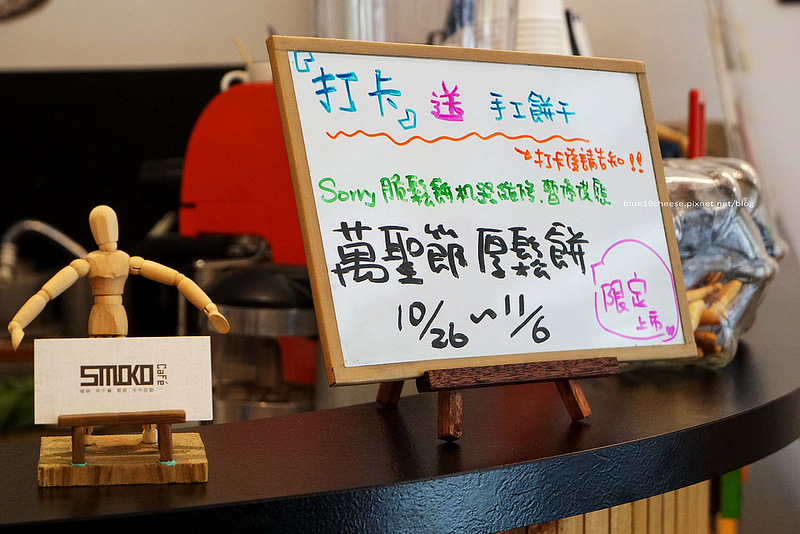 『打卡』送 手工餅干
→打卡後請告知!!
Sorry 脆鬆餅机器維修,暫停供應
萬聖節厚鬆餅
10/26~11/6
限定
上市
SMOKO Café
blue19cheese.pixnet.net/blog